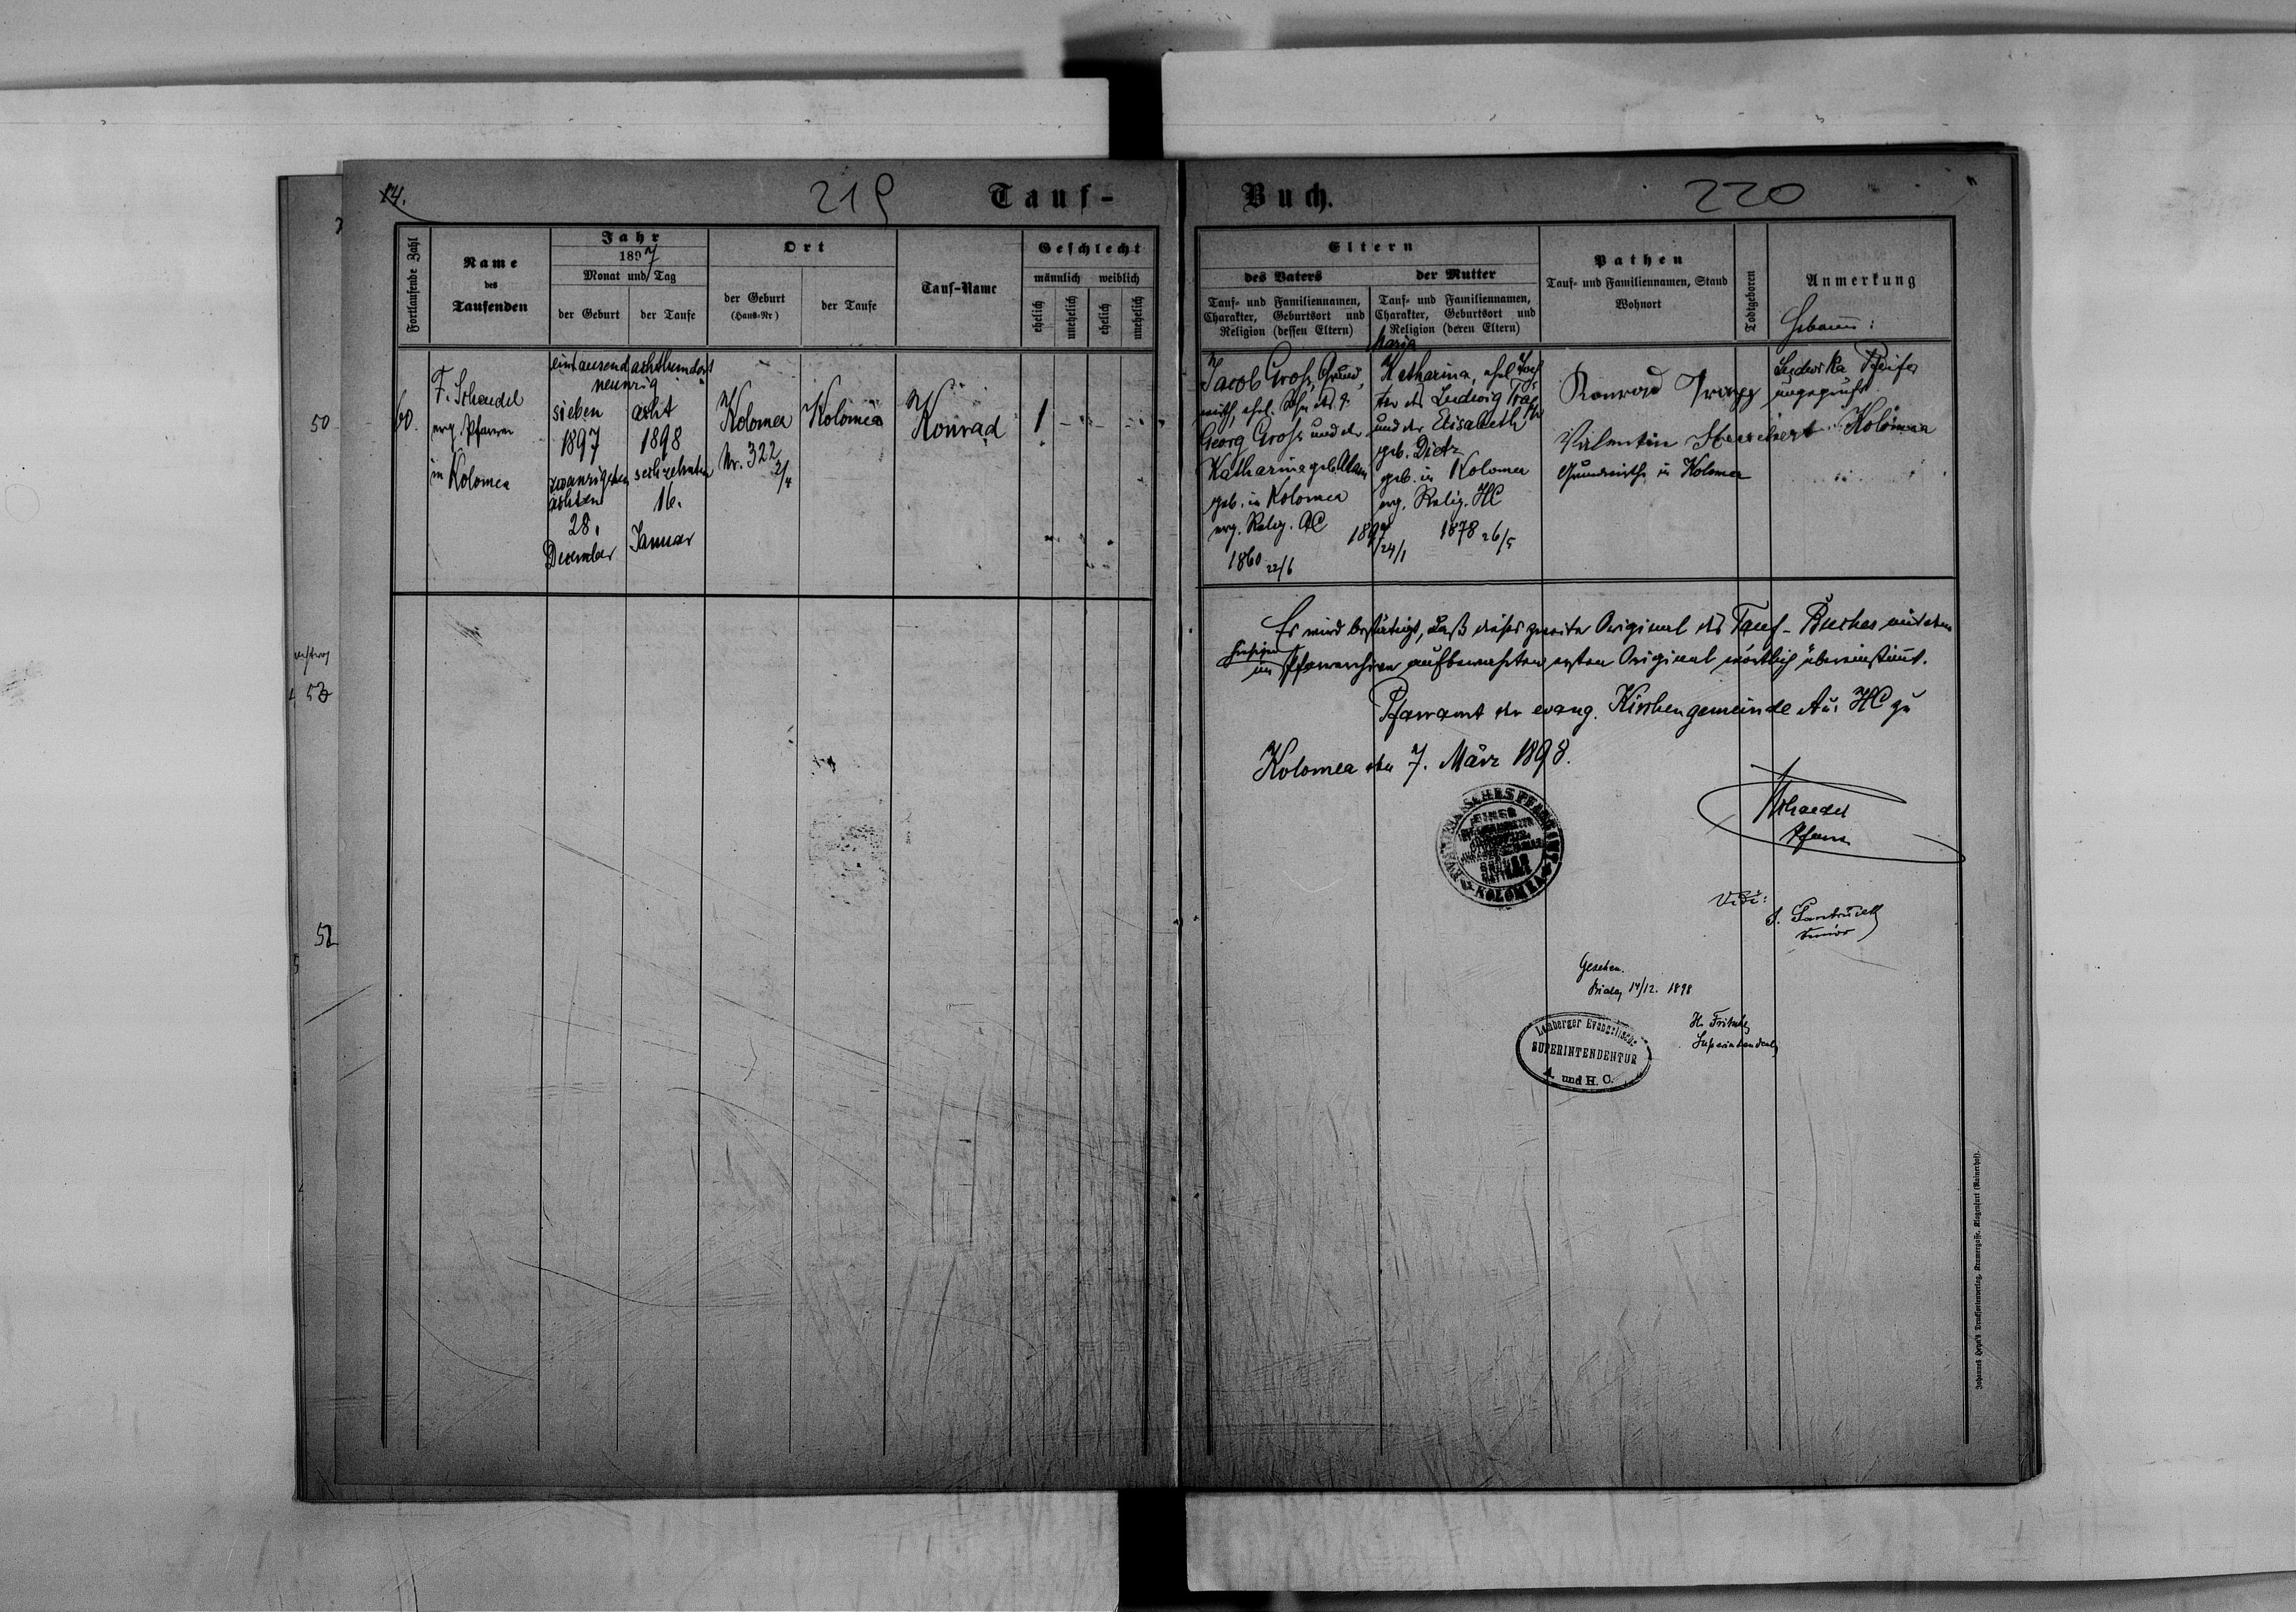 14.
219
Tauf-
Buch.
220
Fortlaufende Zahl
Name
des
Taufenden
Jahr
1897
Monat und Tag
der Geburt
der Taufe
Ort
der Geburt
(Haus-Nr)
der Taufe
Tauf-Name
Geschlecht
männlich weiblich
ehelich
unehelich
ehelich
unehelich
Eltern
des Vaters
Tauf- und Familiennamen,
Charakter, Geburtsort und
Religion (dessen Eltern)
der Mutter
Tauf- und Familiennamen,
Charakter, Geburtsort und
Religion (deren Eltern)
Pathen
Tauf- und Familiennamen, Stand
Wohnort
Todtgeboren
Anmerkung
60.
F. Schaedel
evg. Pfarrer
in Kolomea
eintausend achthundert
neunzig
sieben
1897
zwanzigsten
achten
28.
December
acht
1898
sechzehnten
16.
Januar
Kolomea
Nr. 322
2/4
Kolomea
Konrad
1
Jacob Groß, Grund,
wirth, ehel. Sohn des
Georg Groß und der
Katharina geb. Adam
geb. in Kolomea
evg. Relig. AC
1860 22/6
1897
24/1
Maria
Katharina, ehel. Toch
ter des Ludwig
und der Elisabeth
geb. Dietz
geb. in Kolomea
evg. Relig. HC
1878 26/5
Konrad Trapp
Valentin
Grundwirthe in Kolomea
Hebamme:
Ludwika Pfeifer
ungeprüft
Kolomea
Es wird bestätigt, daß dieses zweite Original des Tauf-Buches mit dem
im hiesigen Pfarrarchive aufbewahrten ersten Original wörtlich übereinstimmt.
Pfarramt der evang. Kirchengemeinde A u. HC zu
Kolomea den 7. März 1898.
Schaedel
Pfarrer
KOLOMEA
Vidi:
Senior
Gesehen.
Biala, 14/12. 1898
H. Fritsche
Superintendent
Lemberger Evangelische
SUPERINTENDENTUR
A. und H. C.
50
52